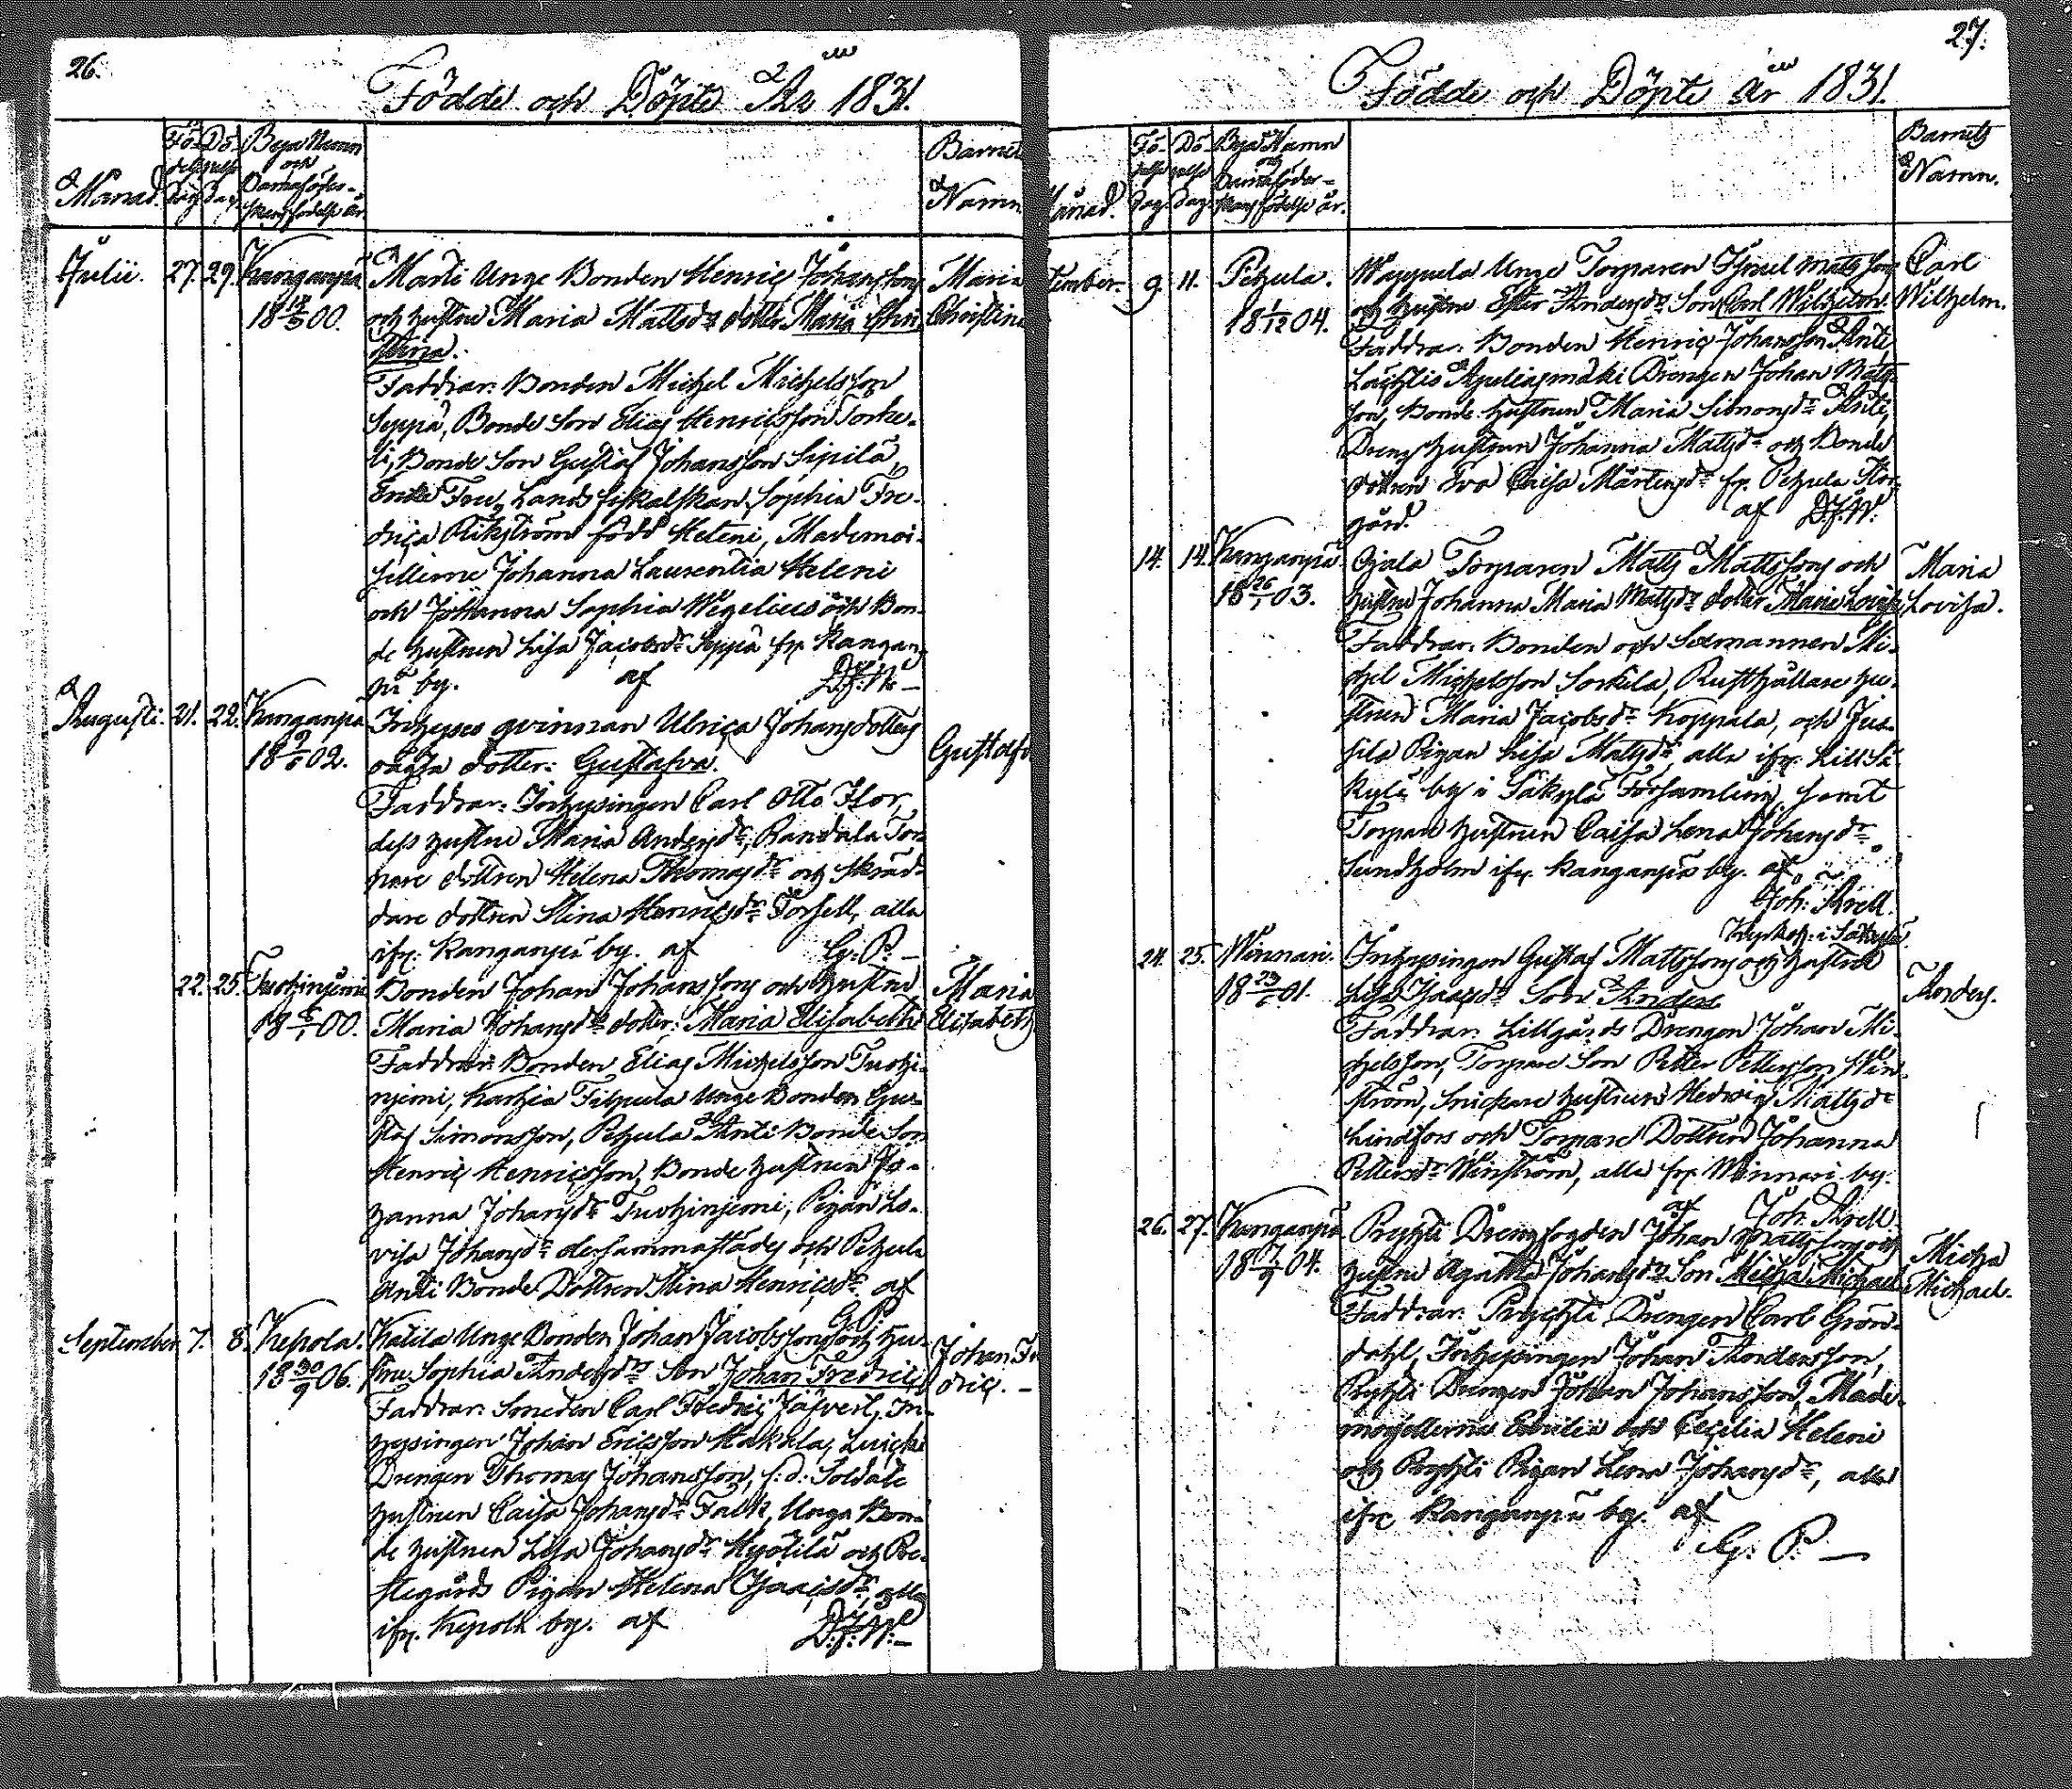 26.
Födde och Döpte År 1831.
Månad.
Födelse Dag
Döpelse Dag
Bya Namn och Barnaföderskans födelse år
Barnets Namn
Julii. 27. 29. Kanganpä 18 00.
Marti Unge Bonden Henric Johanssons
och hustru Maria Mattsdrs dotter Maria Chri
stina.
Maria Christina
Faddrar: Bonden Michel Michelsson
Seppä, Bonde Son Elias Henricsson Sorke-
li, Bonde Son Gustaf Johansson Sipilä,
Fru, Lands fiskalskan, Sophia Fre-
drica född Heleni, Mademoi-
sellerne Johanna Laurentia Heleni
och Johanna Sophia Wegelius och Bon-
de hustrun Lisa Jacobsdr Seppä fr. Kangan-
pä by. af D.J.W.
Augusti. 21. 22. Kanganpä 18 02.
Inhyses qvinnan Ulrica Johansdotters
oägta dotter: Gustafva.
Gustafv
Faddrar: Inhysingen Carl Otto Flor,
dess hustru Maria Andersdr, Randala Tor-
pare dottren Helena Thomasdr och Skräd-
dare dottren Stina Henricsdr Forsell, alla
ifr. Kanganpä by. af G. P. –
22. 25. Tuohinjemi 18 00.
Bonden Johan Johanssons och hustru
Maria Johansdrs dotter: Maria Elisabeth.
Maria Elisabeth
Faddrar: Bonden Elias Michelsson Tuohi-
njemi, Karhia Filpula Unge Bonden Gu-
staf Simonsson, Pehula Anti Bonde Son
Henric Henricsson, Bonde hustrun Jo-
hanna Johansdr Tuohinjemi, Pigan Lo-
visa Johansdr dersammastädes och Pehula
Anti Bonde Dottren Stina Henricsdr. af
G. P.
September 7. 8. Kepola. 18 30/9 06.
Katila Unge Bonden Johan Jacobssons och hu-
stru Sophia Andersdrs Son Johan Fredric
Johan Fre
dric. –
Faddrar: Smeden Carl Fredric Jäfvert, In-
hysingen Johan Ericsson Hakala,
Drengen Thomas Johansson, f. d. Soldate
hustrun Caisa Johansdr Falk, Unga Bon-
de hustrun Lisa Johansdr Hyötilä och Pre-
stegårds Pigan Helena Isaacsdr, alla
ifr. Kepola by. af D.J.W. –
27.
Födde och Döpte År 1831.
Månad.
Födelse Dag
Döpelse Dag
Bya Namn och Barnaföderskans födelse år.
Barnets Namn.
tember. 9. 11. Pehula. 18 1/12 04.
Unge Torparen Israel Mattssons
och hustru Ester Andersdrs Son Carl Wilhelm.
Carl Wilhelm.
Faddrar: Bonden Henric Johansson Anti,
Drengen Johan Matts-
son, Bonde hustrun Maria Simonsdr Anti,
Dreng hustrun Johanna Mattsdr och Bonde
dottren Eva Caisa Mårtensdr fr. Pehula Stor
gård. af D.J.W.
14. 14. Kanganpä 18 26/1 03.
Ojala Torparen Matts Mattssons och
hustru Johanna Maria Mattsdrs dotter Maria Lovisa
Maria Lovisa.
Faddrar: Bonden och Sexmannen Mi-
chel Michelsson Sorkila, Rusthållare hu-
strun Maria Jacobsdr Koppala, och Jus-
sila Pigan Lisa Mattsdr, alla ifr. Lill Sä-
kylä by i Säkylä Församling, samt
Torpare hustrun Caisa Lena Johansdr
Sundholm ifr. Kanganpä by. af
Joh: Arell.
i Säkylä
24. 25. Winnari. 18 01.
Inhysingen Gustaf Mattssons och hustru
Lisa Isaacsdrs Son Anders
Anders.
Faddrar: Lillgårds Drengen Johan Mi-
chelsson, Torpare Son Petter Pettersson Win-
ström, Snickare hustrun Hedvig Mattsdr
Lindfors och Torpare Dottren Johanna
Pettersdr Winström, alla fr. Winnari by.
af Joh: Arell.
26. 27. Kanganpä 18 7/9 04.
Pryhti Drengfogden Johan Mattssons och
hustru Agatha Johansdrs Son Micha Michael
Micha Michael.
Faddrar: Pryhti Drengen Carl Grön-
dahl, Inhysingen Johan Andersson,
Pryhti Drengen Johan Johansson, Made-
moisellerne Emilia och Cecilia Heleni
och Pryhti Pigan Lena Johansdr, alla
ifr. Kanganpä by. af
G. P. –